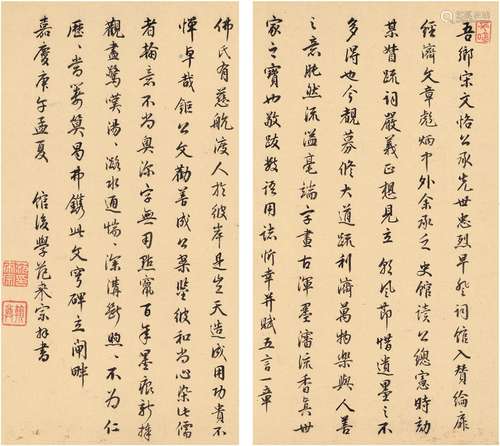 吾鄉宋文恪公承先世忠烈早登詞館入贊綸扉
經濟文章彪炳中外余承乏史館讀公總憲時劾
某督疏詞嚴義正想見立朝風節惜遺墨之不
多得也今觀募修大道疏利濟萬物樂與人善
之意肫然流溢毫端字畫古渾墨瀋流香真世
家之寶也敬跋數語用誌忻幸并賦五言一章
佛氏有慈航渡人於彼岸是豈天造成用功貴不
憚卓哉鉅公文勸善成公案豈彼和尚心染比儒
者翰言不尚奧深字無用點竄百年墨痕新拜
觀盡驚漢湯湯澱水通惴惴深溝斷煦煦不為仁
歷歷嘗募算曷弗鐫此文穹碑立閘畔
嘉慶庚午孟夏 館後學范來宗拜書